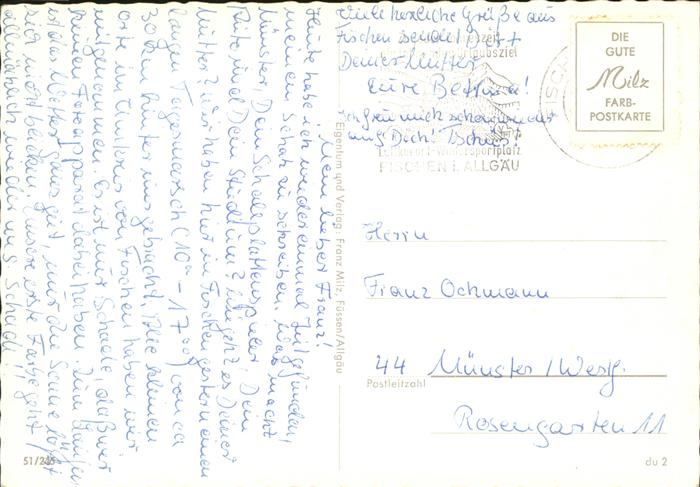 Mein lieber Franz!
Heute habe ich wieder einmal Zeit gefunden,
meinem Schatz zu schreiben. Was macht
Münster, Dein Schallplattenspieler, Dein
und Dein Studium? Wie geht es Deiner
Mutter? Wir haben hier in Fischen gestern einen
langen Tagesmarsch (10°° - 17°°) von ca
30 km hinter uns gebracht. Alle kleinen
Orte im Umkreis von Fischen haben wir
mitgenommen. Es ist nur Schade, daß wir
keinen Fotoapparat dabei haben. Zum
ist das Wetter sehr gut, nur die Sonne läßt
sich nicht blicken. Unsere erste Farbe geht
allmählich wieder
Viele herzliche Grüße aus
Fischen sendet
Deiner Mutter
Eure Bettina!
Ich freu mich schon
auf Dich! Tschüs!
FISCHEN I. ALLGÄU
DIE
GUTE
Milz
FARB-
POSTKARTE
Eigentum und Verlag: Franz Milz, Füssen/Allgäu
Herrn
Franz Ockmann
44 Münster / Westf.
Postleitzahl
Rosengarten 11
51/265
du 2